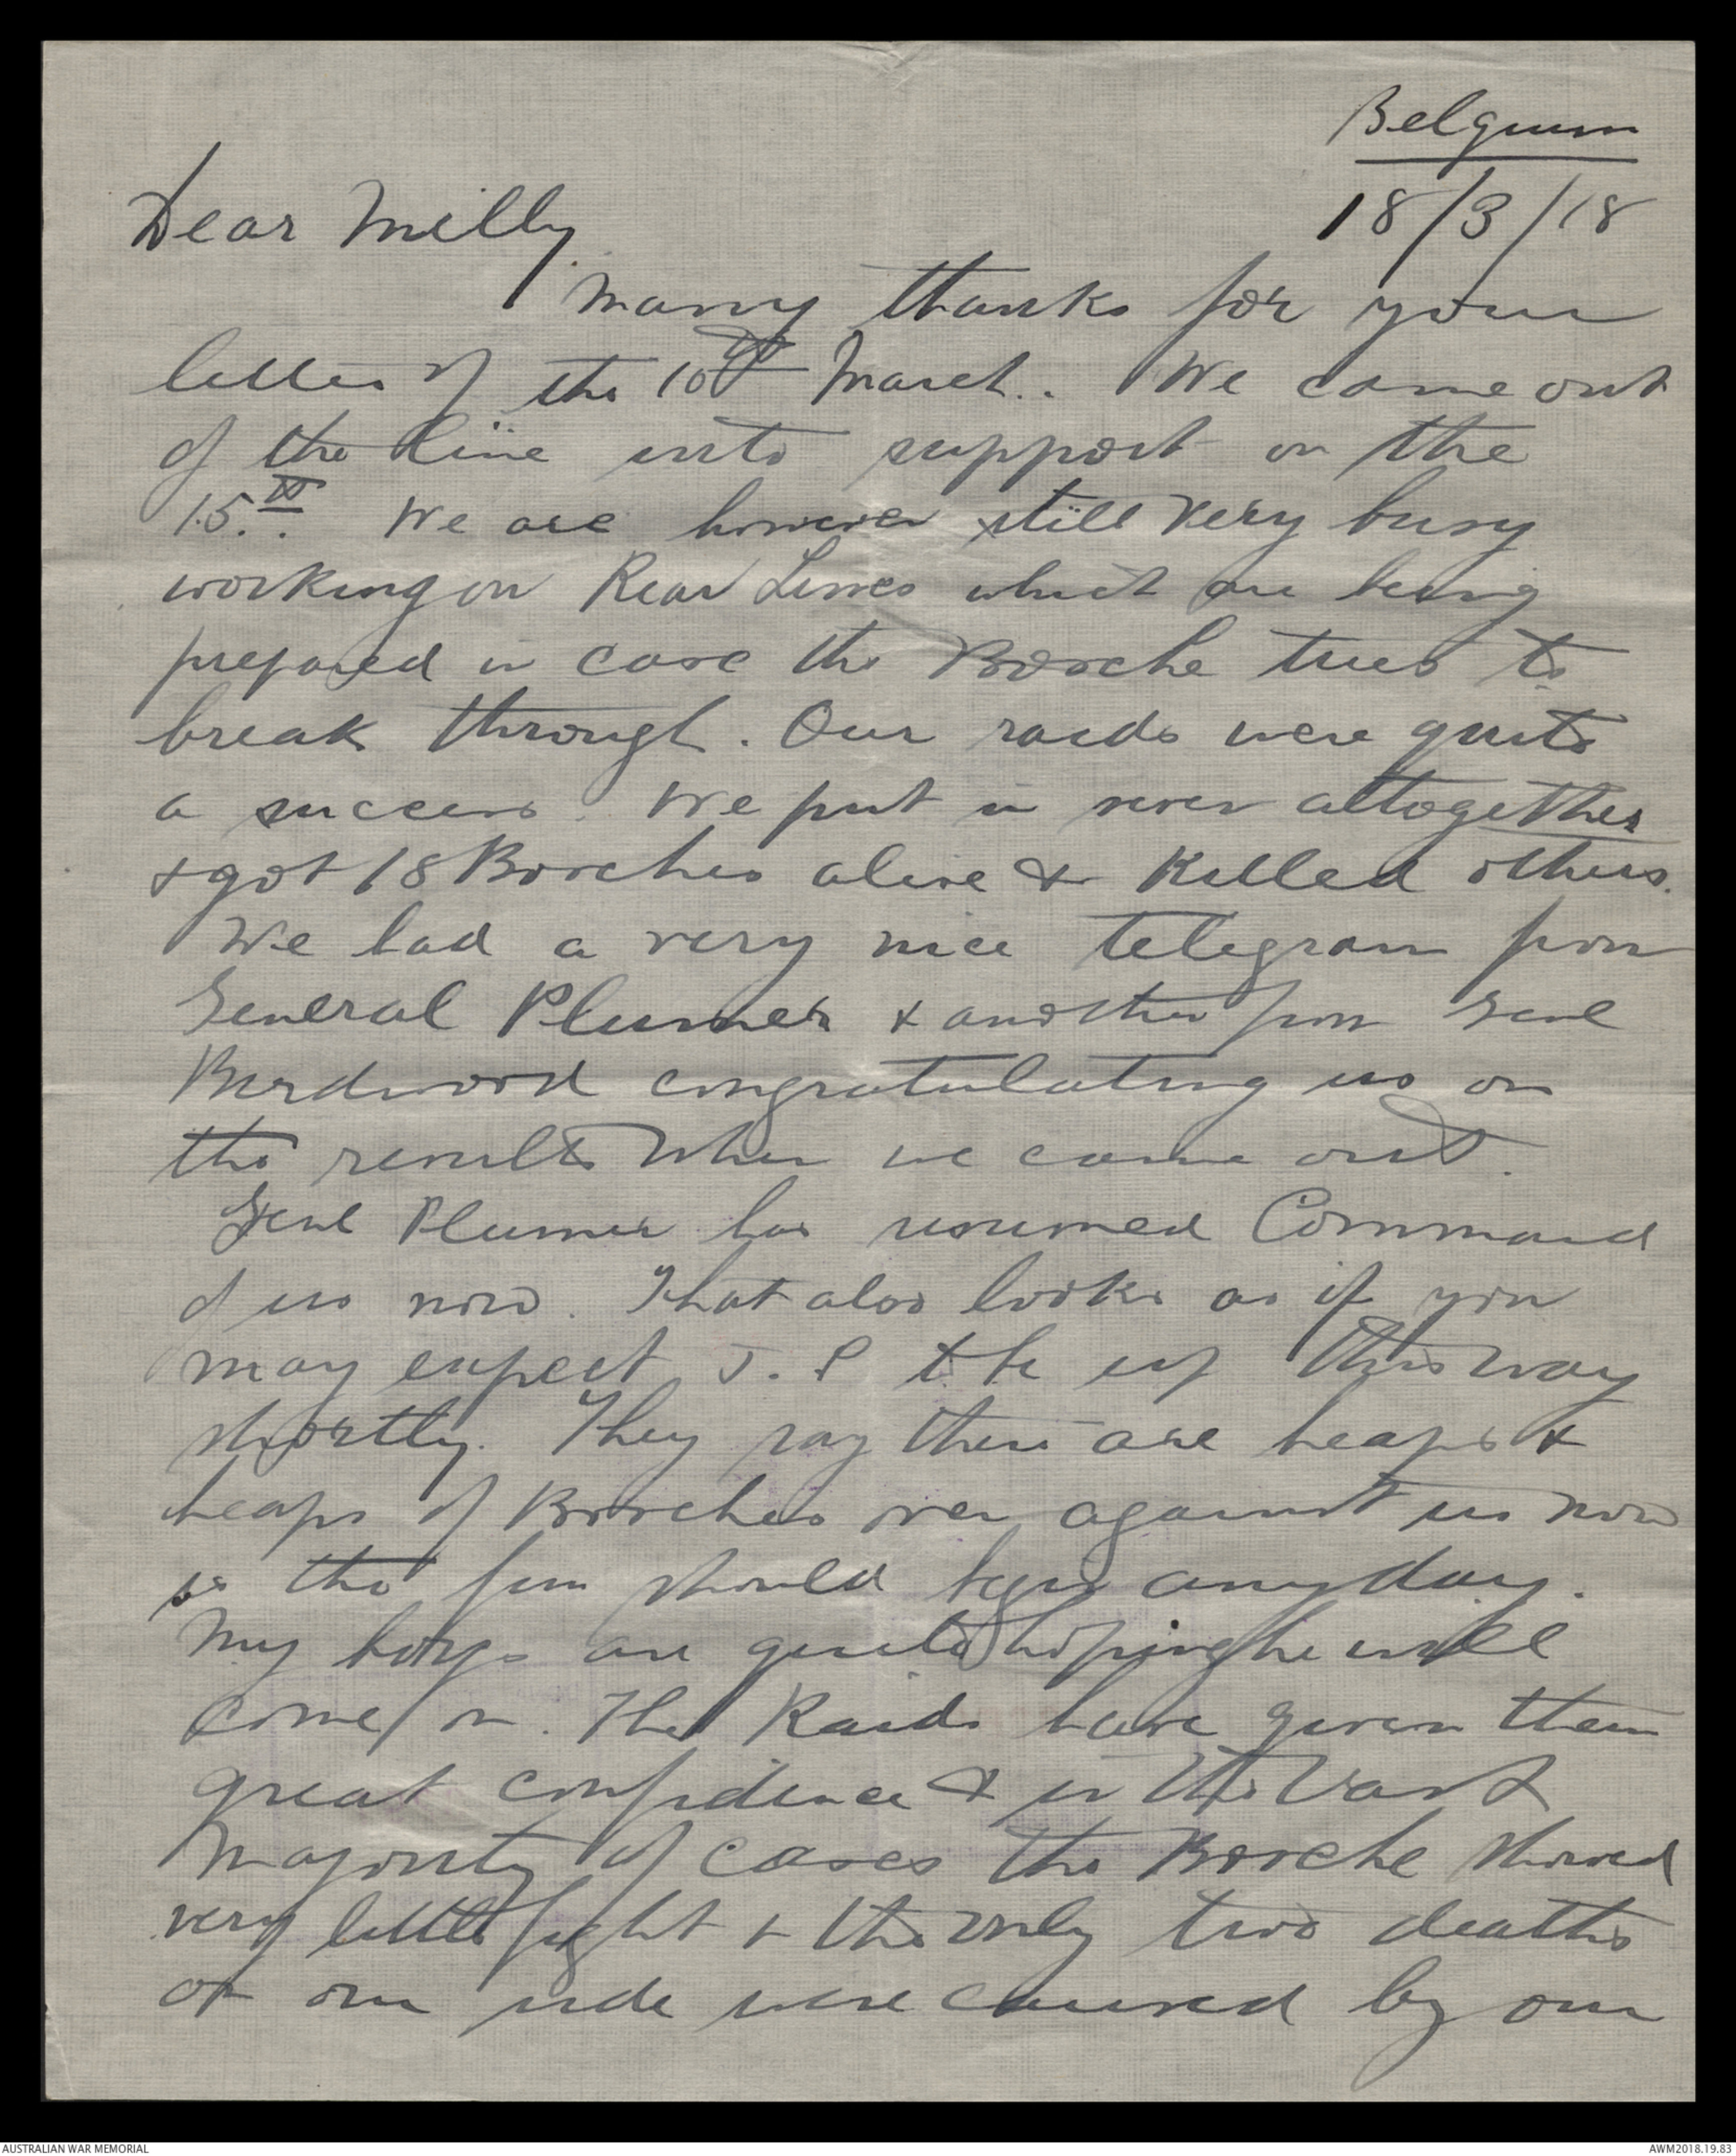 Belgium
18/3/18
Dear Milly
Many thanks for your
letter of the 10th March.. We came out
of the line into support on the
15th. We are however still very busy
working on Rear Lines which are being
prepared in case the Bosche tries to
break through. Our raids were quite
a success. We put in seven altogether
& got 18 Bosches alive & killed others.
We had a very nice telegram from
General Plumer & another from Genl
Birdwood congratulating us on
the results when we came out.
Genl Plumer has resumed Command
of us now. That also looks as if you
may expect J. up this way
shortly. They say there are heaps &
heaps of Bosches over against us now
so the fun should begin any day.
My boys are quite hoping he will
come on. The Raids have given them
great confidence & in the vast
majority of cases the Bosche showed
very little fight & the only two deaths
on our side were caused by our
AUSTRALIAN WAR MEMORIAL
AWM2018.19.83